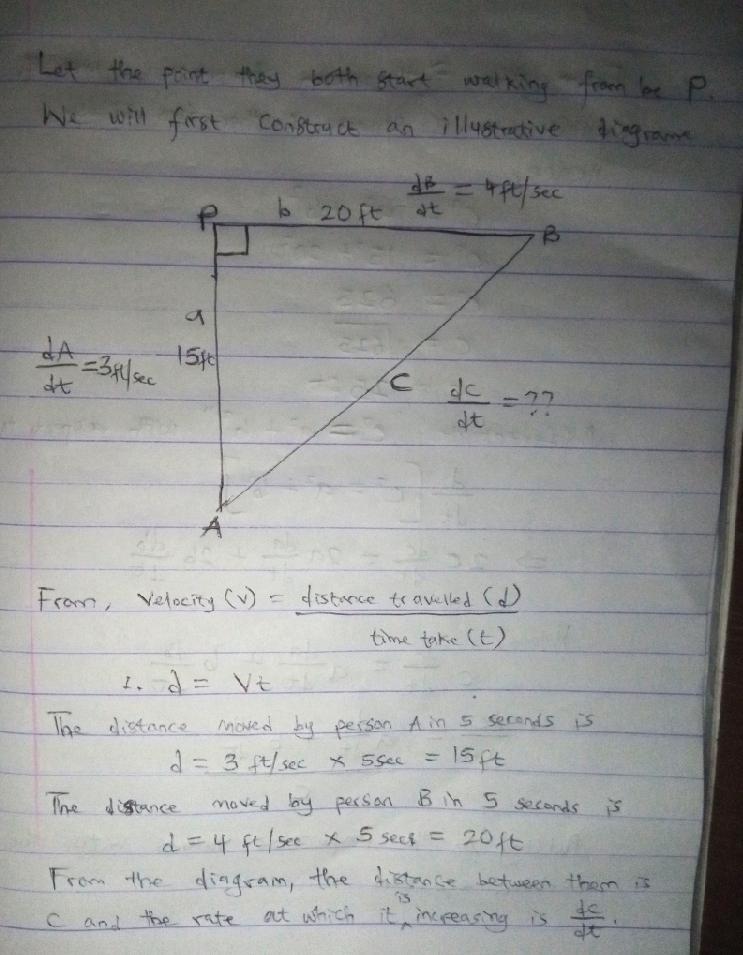 Let the point they both start walking from be P.
We will first construct an illustrative diagrame
dB/dt = 4ft/sec
P b 20 ft B
a
dA/dt = 3ft/sec 15ft
C dc/dt = ??
A
From, Velocity (v) = distance travelled (d) / time take (t)
1. d = Vt
The distance moved by person A in 5 seconds is
d = 3 ft/sec × 5sec = 15ft
The distance moved by person B in 5 seconds is
d = 4 ft/sec × 5 secs = 20ft
From the diagram, the distance between them is
C and the rate at which it is increasing is dc/dt.